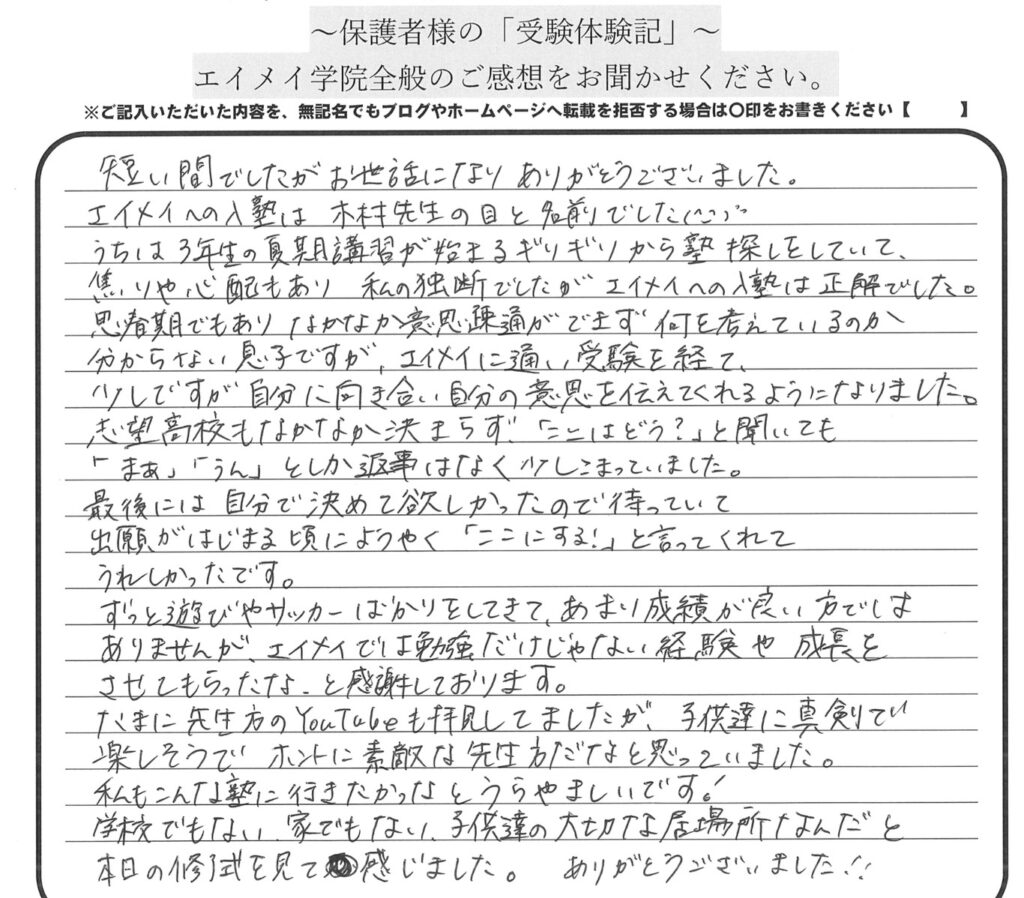 ～保護者様の「受験体験記」～
エイメイ学院全般のご感想をお聞かせください。
※ご記入いただいた内容を、無記名でもブログやホームページへ転載を拒否する場合は〇印をお書きください【　　】
短い間でしたがお世話になり ありがとうございました。
エイメイへの入塾は 木村先生の目と名前でした(^^)
うちは3年生の夏期講習が始まるギリギリから塾探しをしていて、
焦りや心配もあり 私の独断でしたが エイメイへの入塾は正解でした。
思春期でもあり なかなか意思疎通ができず 何を考えているのか
分からない息子ですが、エイメイに通い受験を経て、
少しですが自分に向き合い自分の意思を伝えてくれるようになりました。
志望高校もなかなか決まらず、「ここはどう?」と聞いても
「まぁ」「うん」としか返事はなく少しこまっていました。
最後には自分で決めて欲しかったので待っていて
出願がはじまる頃にようやく「ここにする!」と言ってくれて
うれしかったです。
ずっと遊びやサッカーばかりをしてきて、あまり成績が良い方では
ありませんが、エイメイでは勉強だけじゃない経験や成長を
させてもらったな、と感謝しております。
たまに先生方のYouTubeも拝見してましたが、子供達に真剣で
楽しそうで ホントに素敵な先生方だなと思っていました。
私もこんな塾に行きたかったなとうらやましいです!
学校でもない、家でもない、子供達の大切な居場所なんだと
本日の修了式を見て感じました。 ありがとうございました!!